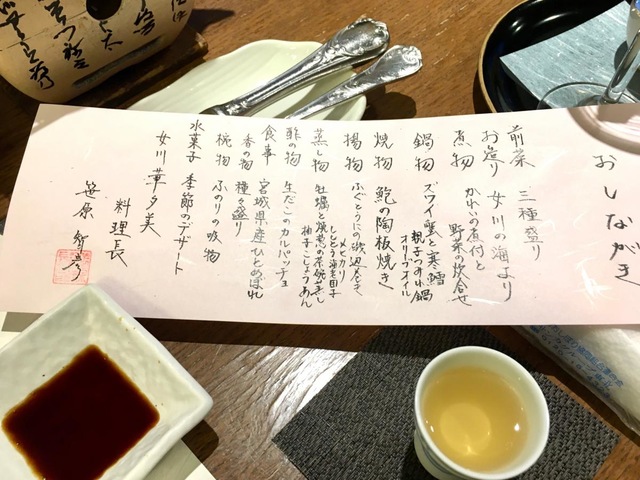 おしながき
前菜 三種盛り
お造り 女川の海より
煮物 かれいの煮付と
野菜の炊合せ
鍋物 ズワイ蟹と寒鱈
親子つみれ鍋
オリーブオイル
焼物 鮑の陶板焼き
揚物 ふぐとうにの磯辺巻き
メヒカリ
ししとう海老団子
蒸し物 牡蠣と
柚子こしょうあん
酢の物 生だこのカルパッチョ
食事 宮城県産ひとめぼれ
香の物 種々盛り
椀物 ふのりの吸物
水菓子 季節のデザート
女川 華夕美
料理長
笹原